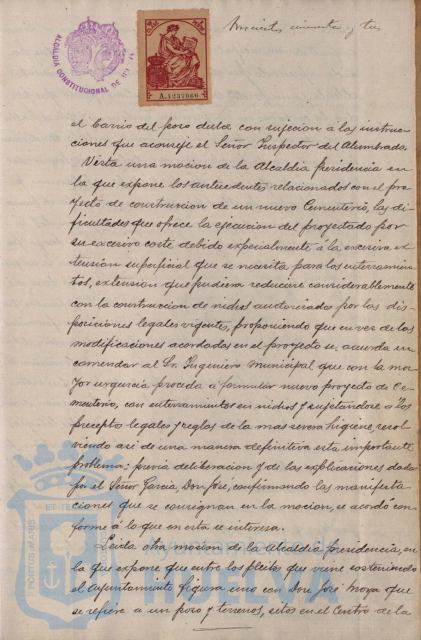 ALCALDIA CONSTITUCIONAL DE HUELVA
A.4237066
el barrio del pozo dulce con sujecion á las instruc-
ciones que aconseje el Señor Inspector del Alumbrado.
Vista una mocion de la Alcaldia Presidencia en
la que expone los antecedentes relacionados con el pro-
yecto de construccion de un nuevo Cementerio, las di-
ficultades que ofrece la ejecucion del proyectado por
su excesivo coste debido especialmente á la excesiva ex-
tension superficial que se necesita para los enterramien-
tos, extension que pudiera reducirse considerablemente
con la construccion de nichos autorizados por las dis-
posiciones legales vigentes, proponiendo que en vez de las
modificaciones acordadas en el proyecto se acuerda en-
comendar al Sr. Ingeniero Municipal que con la ma-
yor urgencia proceda á formular nuevo proyecto de Ce-
menterio, con enterramientos en nichos y sujetandose á los
preceptos legales y reglas de la mas severa higiene, resol-
viendo asi de una manera definitiva esta importante
problema: previa deliberacion y de las explicaciones dadas
por el Señor Garcia, Don José, confirmando las manifesta-
ciones que se consignan en la mocion, se acordó con-
forme á lo que en esta se interesa.
Leida otra mocion de la Alcaldia presidencia, en
la que expone que entre los pleitos que viene sosteniendo
el Ayuntamiento figura uno con Don José Moya que
se refiere a un pozo y terrenos, sitos en el Centro de la
PORTUS MARIS
Ayuntamiento de
HUELVA